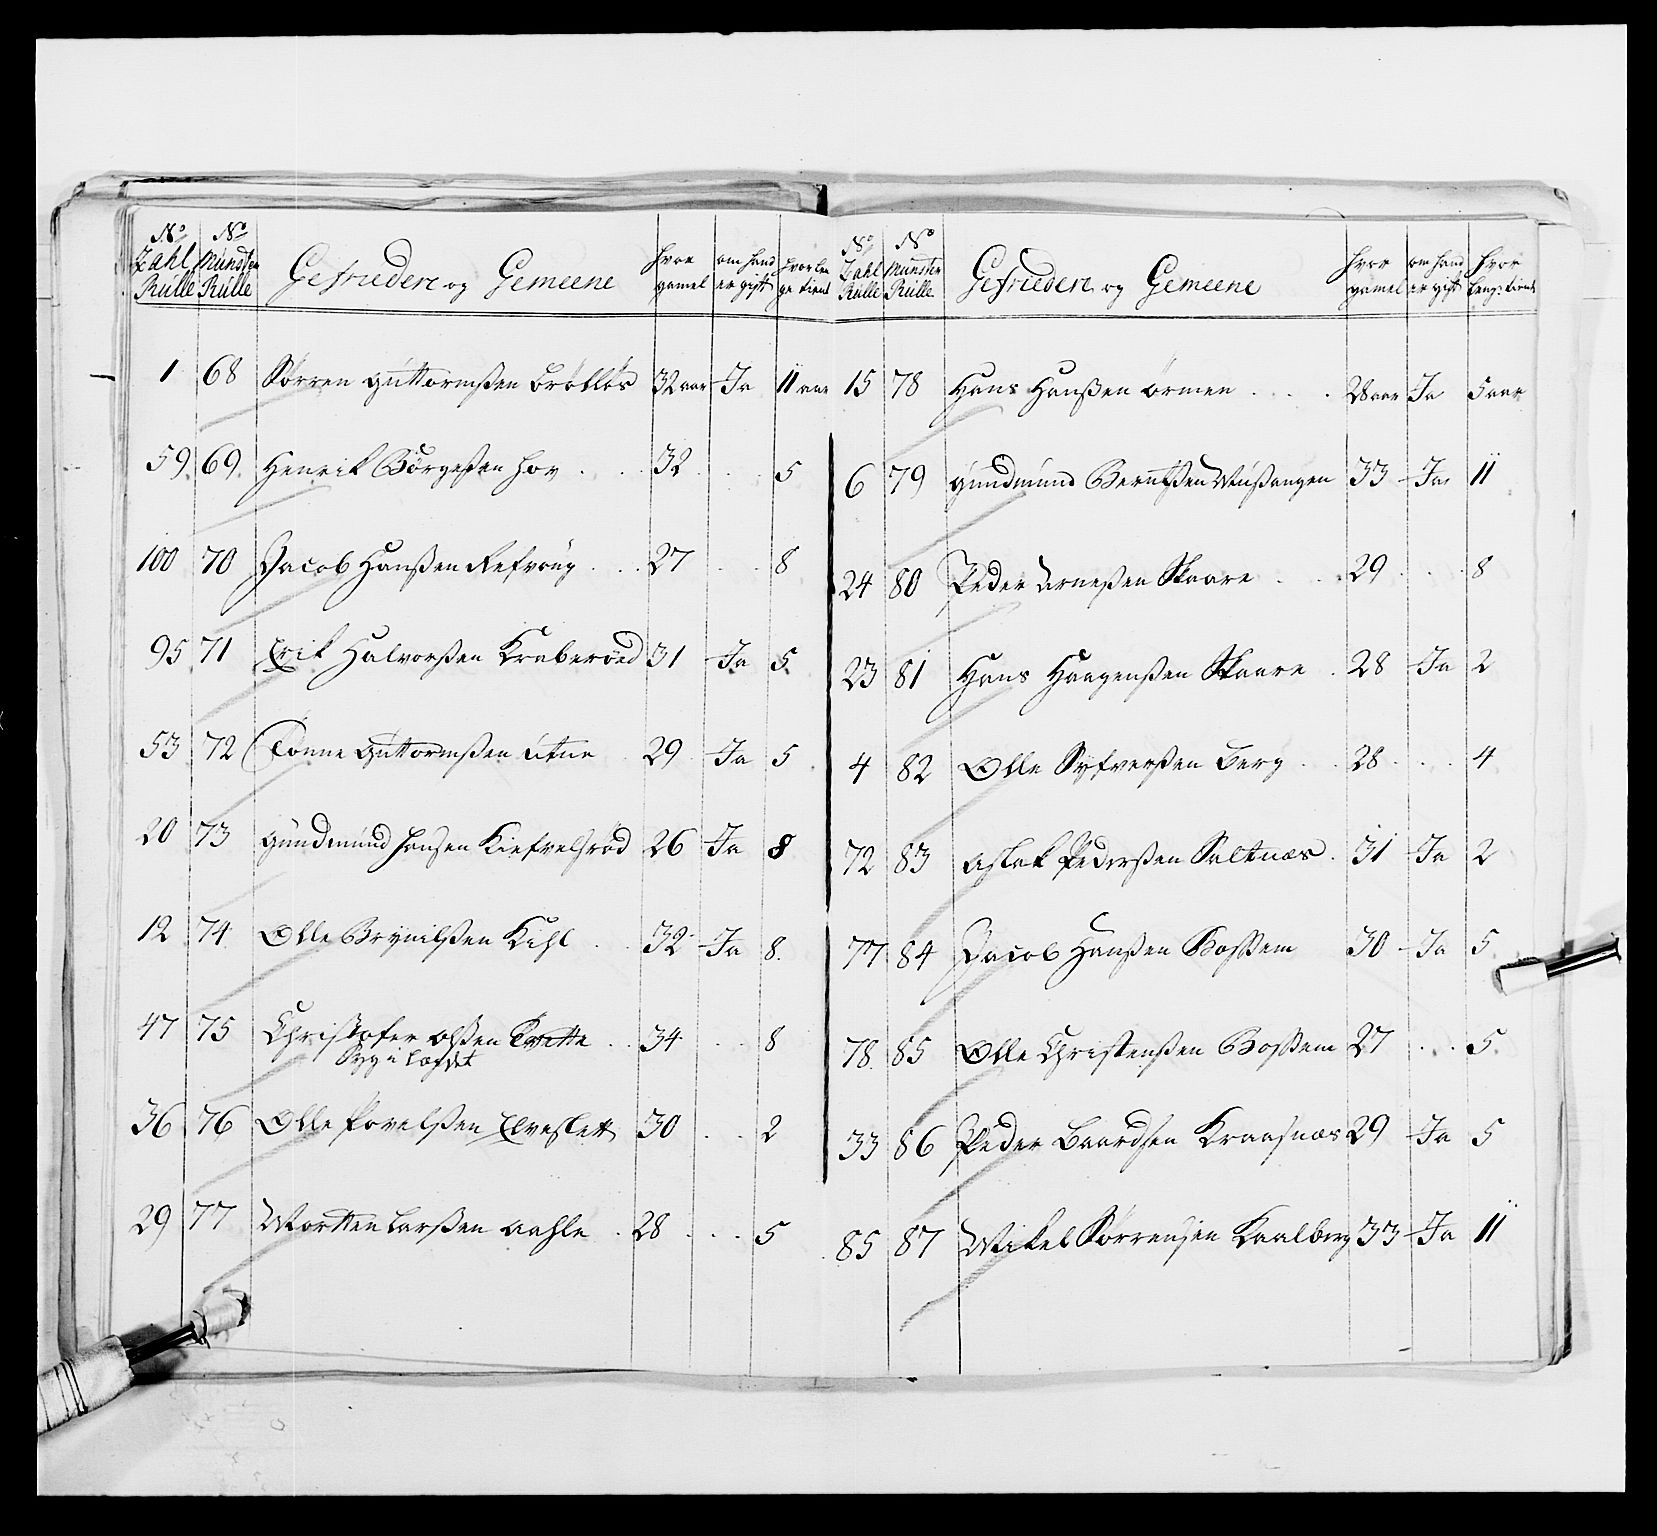 No Zahl Rulle | No Munster Rulle | Gefriedere og Gemeene | hvor gamel | om hand er gift | hvor lenge tient
1 | 68 | Sørren Guttormßen Brøtløs | 32 aar | Ja | 11 aar
59. | 69. | Henrik Børgeßen Hov . . . | 32 | . . | 5
100 | 70 | Jacob Hanßen Refvoug . . . | 27 | . . | 8
95 | 71 | Erik Halvorßen Kraberøed | 31 | Ja | 5.
53 | 72 | Tønne Guttormßen Utne | 29 | Ja | 5
20 | 73 | Gundmund Hansen Kiefvelsrød | 26 | Ja | 8
12 | 74 | Olle Brynilßen Kihl . . | 32 | Ja | 8.
47 | 75 | Christofer Olßen Tvette . . | 34 | . . | 8
Syg i lægdet
36 | 76 | Olle Povelßen Elveslett | 30 | . . | 2
29 | 77 | Mortten Larßen Aahle . | 28 | . . . | 5
No Zahl Rulle | No Munster Rulle | Gefriedere og Gemeene | hvor gamel | om hand er gift | hvor leng: tient
15 | 78 | Hans Hanßen Ørmen . . . . | 28 aar | Ja | 5 aar
6 | 79 | Gundmund Berntßen Mußangen | 33 | Ja | 11
24 | 80 | Peder Arneßen Skaare . . . | 29 | . . . | 8
23 | 81 | Hans Haagenßen Skaare . | 28 | Ja | 2
4 | 82 | Olle Syfverßen Berg . . | 28 | . . . | 4
72 | 83 | Aslak Pederßen Saltnæs . | 31 | Ja | 2
77 | 84 | Jacob Hanßen Boßem | 30 | Ja | 5.
78. | 85 | Olle Christenßen Boßem | 27 | . . . | 5.
33 | 86 | Peder Baardsen Kraasnæs | 29 | Ja | 5
85 | 87 | Mikel Sørrensen Kaalberg | 33 | Ja | 11